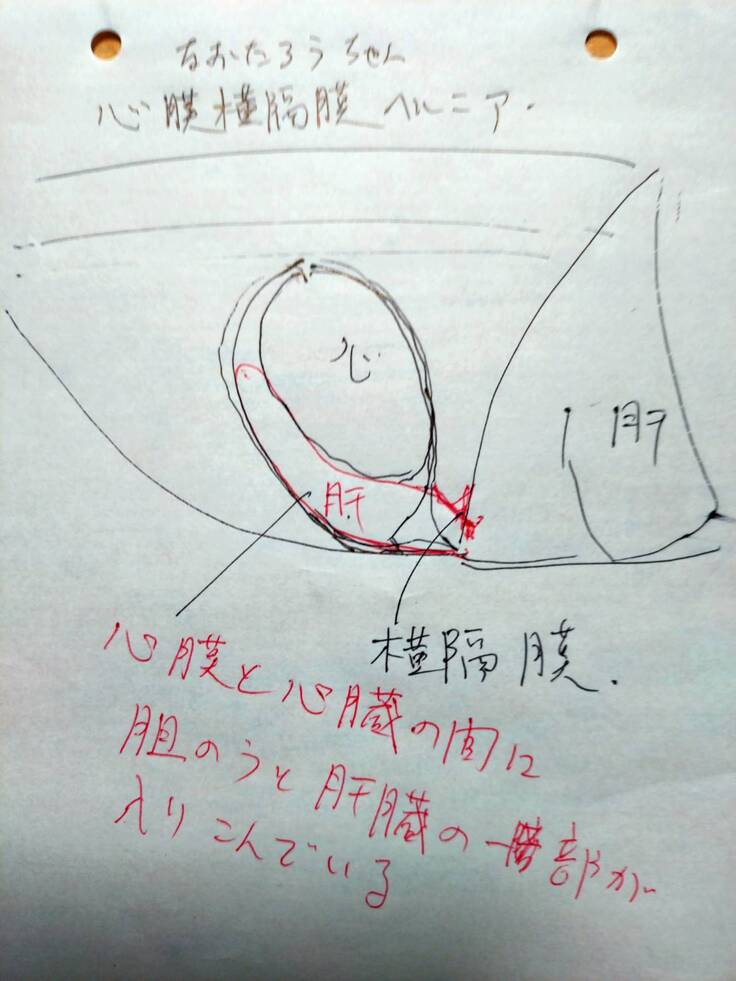 なおたろうちゃん
心膜横隔膜ヘルニア.
心
肝
肝
横隔膜.
心膜と心臓の間に
胆のうと肝臓の一部が
入りこんでいる